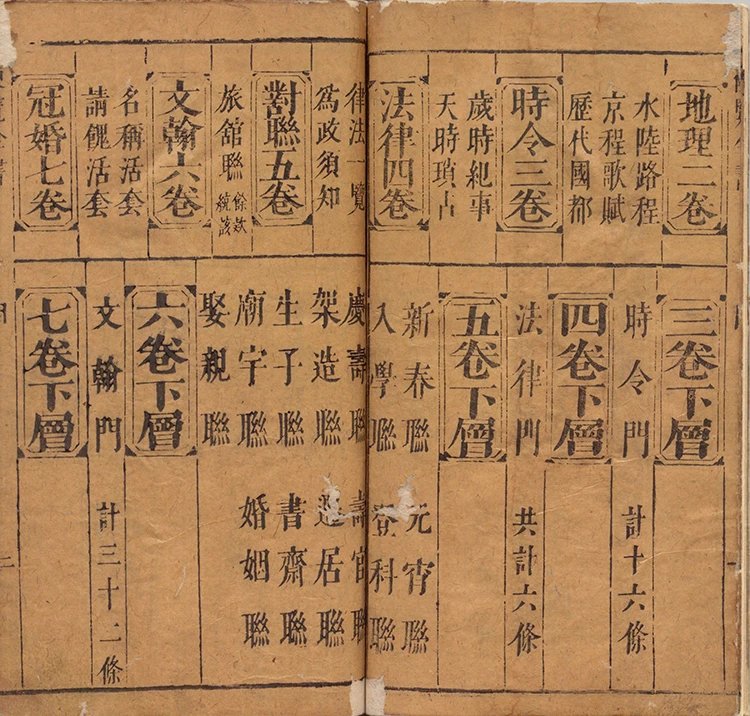 地理二卷
水陸路程
京程歌賦
歷代國都
時令三卷
歲時紀事
天時瑣占
法律四卷
三卷下層
時令門 計十六條
四卷下層
法律門 共計六條
五卷下層
新春聯 元宵聯
入學聯 登科聯
律法一覽
為政須知
對聯五卷
旅舘聯
文翰六卷
名稱活套
請餽活套
冠婚七卷
慶壽聯 壽官聯
架造聯 遷居聯
生子聯 書齋聯
廟宇聯 婚姻聯
娶親聯
六卷下層
文翰門 計三十二條
七卷下層